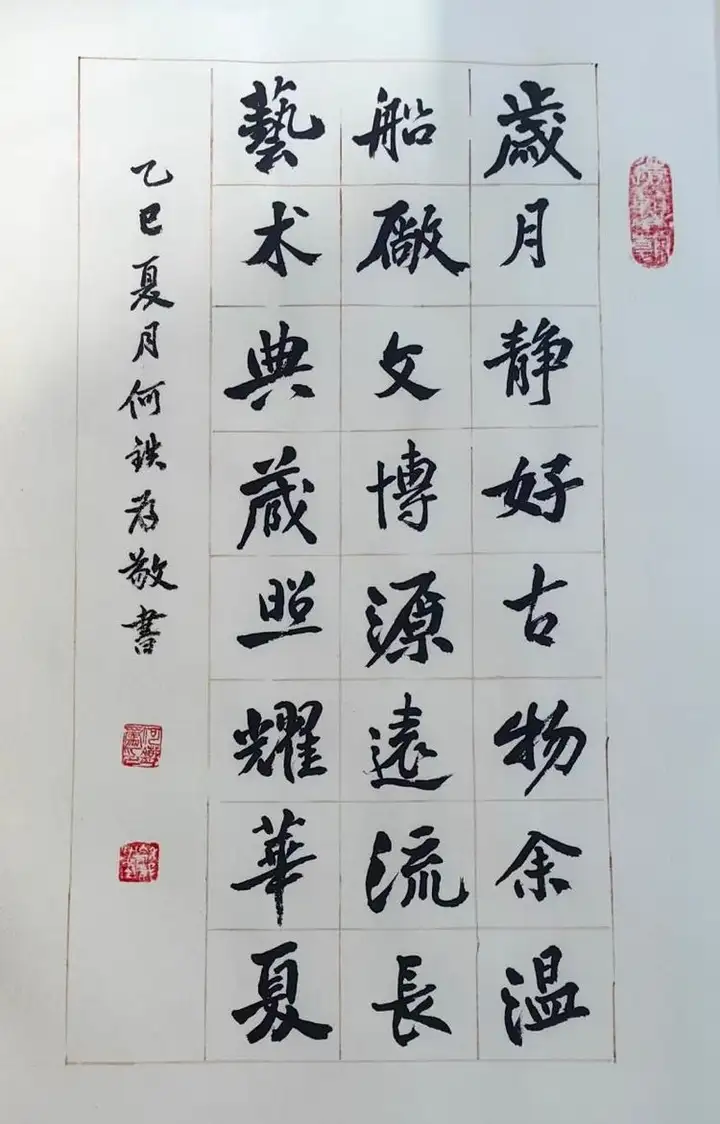 歲月靜好古物余温
船廠文博源遠流長
藝术典蔵照耀華夏
乙巳夏月何鉄為敬書